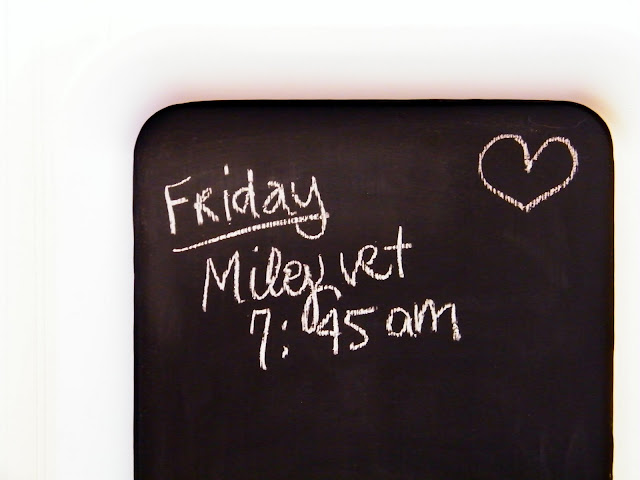 Friday
Miley vet
7:45 am